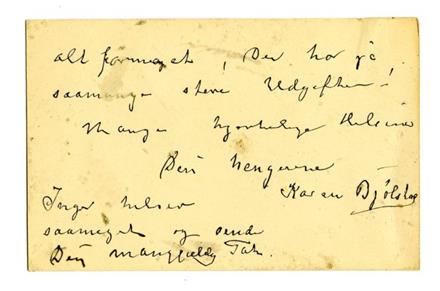 alt formeget, Der har jo
saamange store Udgifter!
Mange hjertelige Hilsner
Din hengivne
Karen Bjølstad
Inger hilser
saameget og sender
Dig mangfoldig Tak.